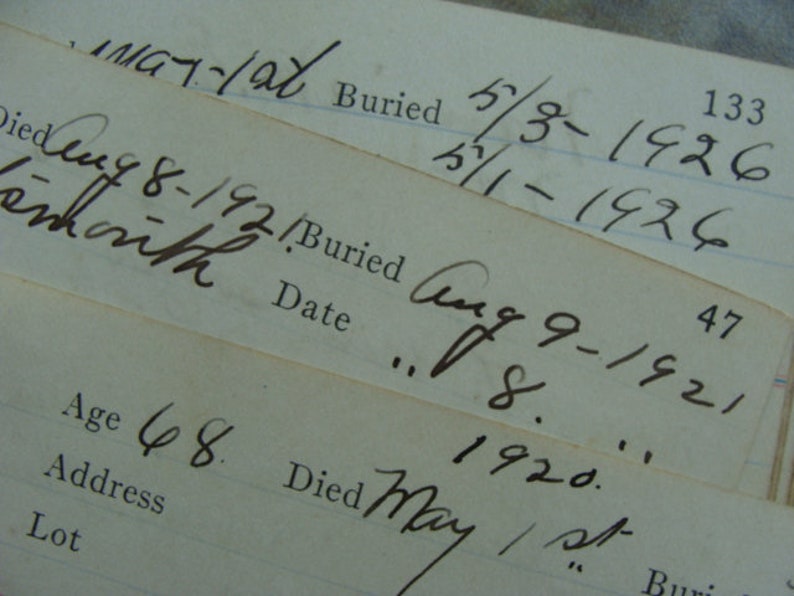 May-1st Buried 5/3-1926 133
5/1-1926
Died Aug 8-1921. Buried Aug 9-1921 47
Date " 8. "
1920.
Age 68. Died May 1st
Address
Lot